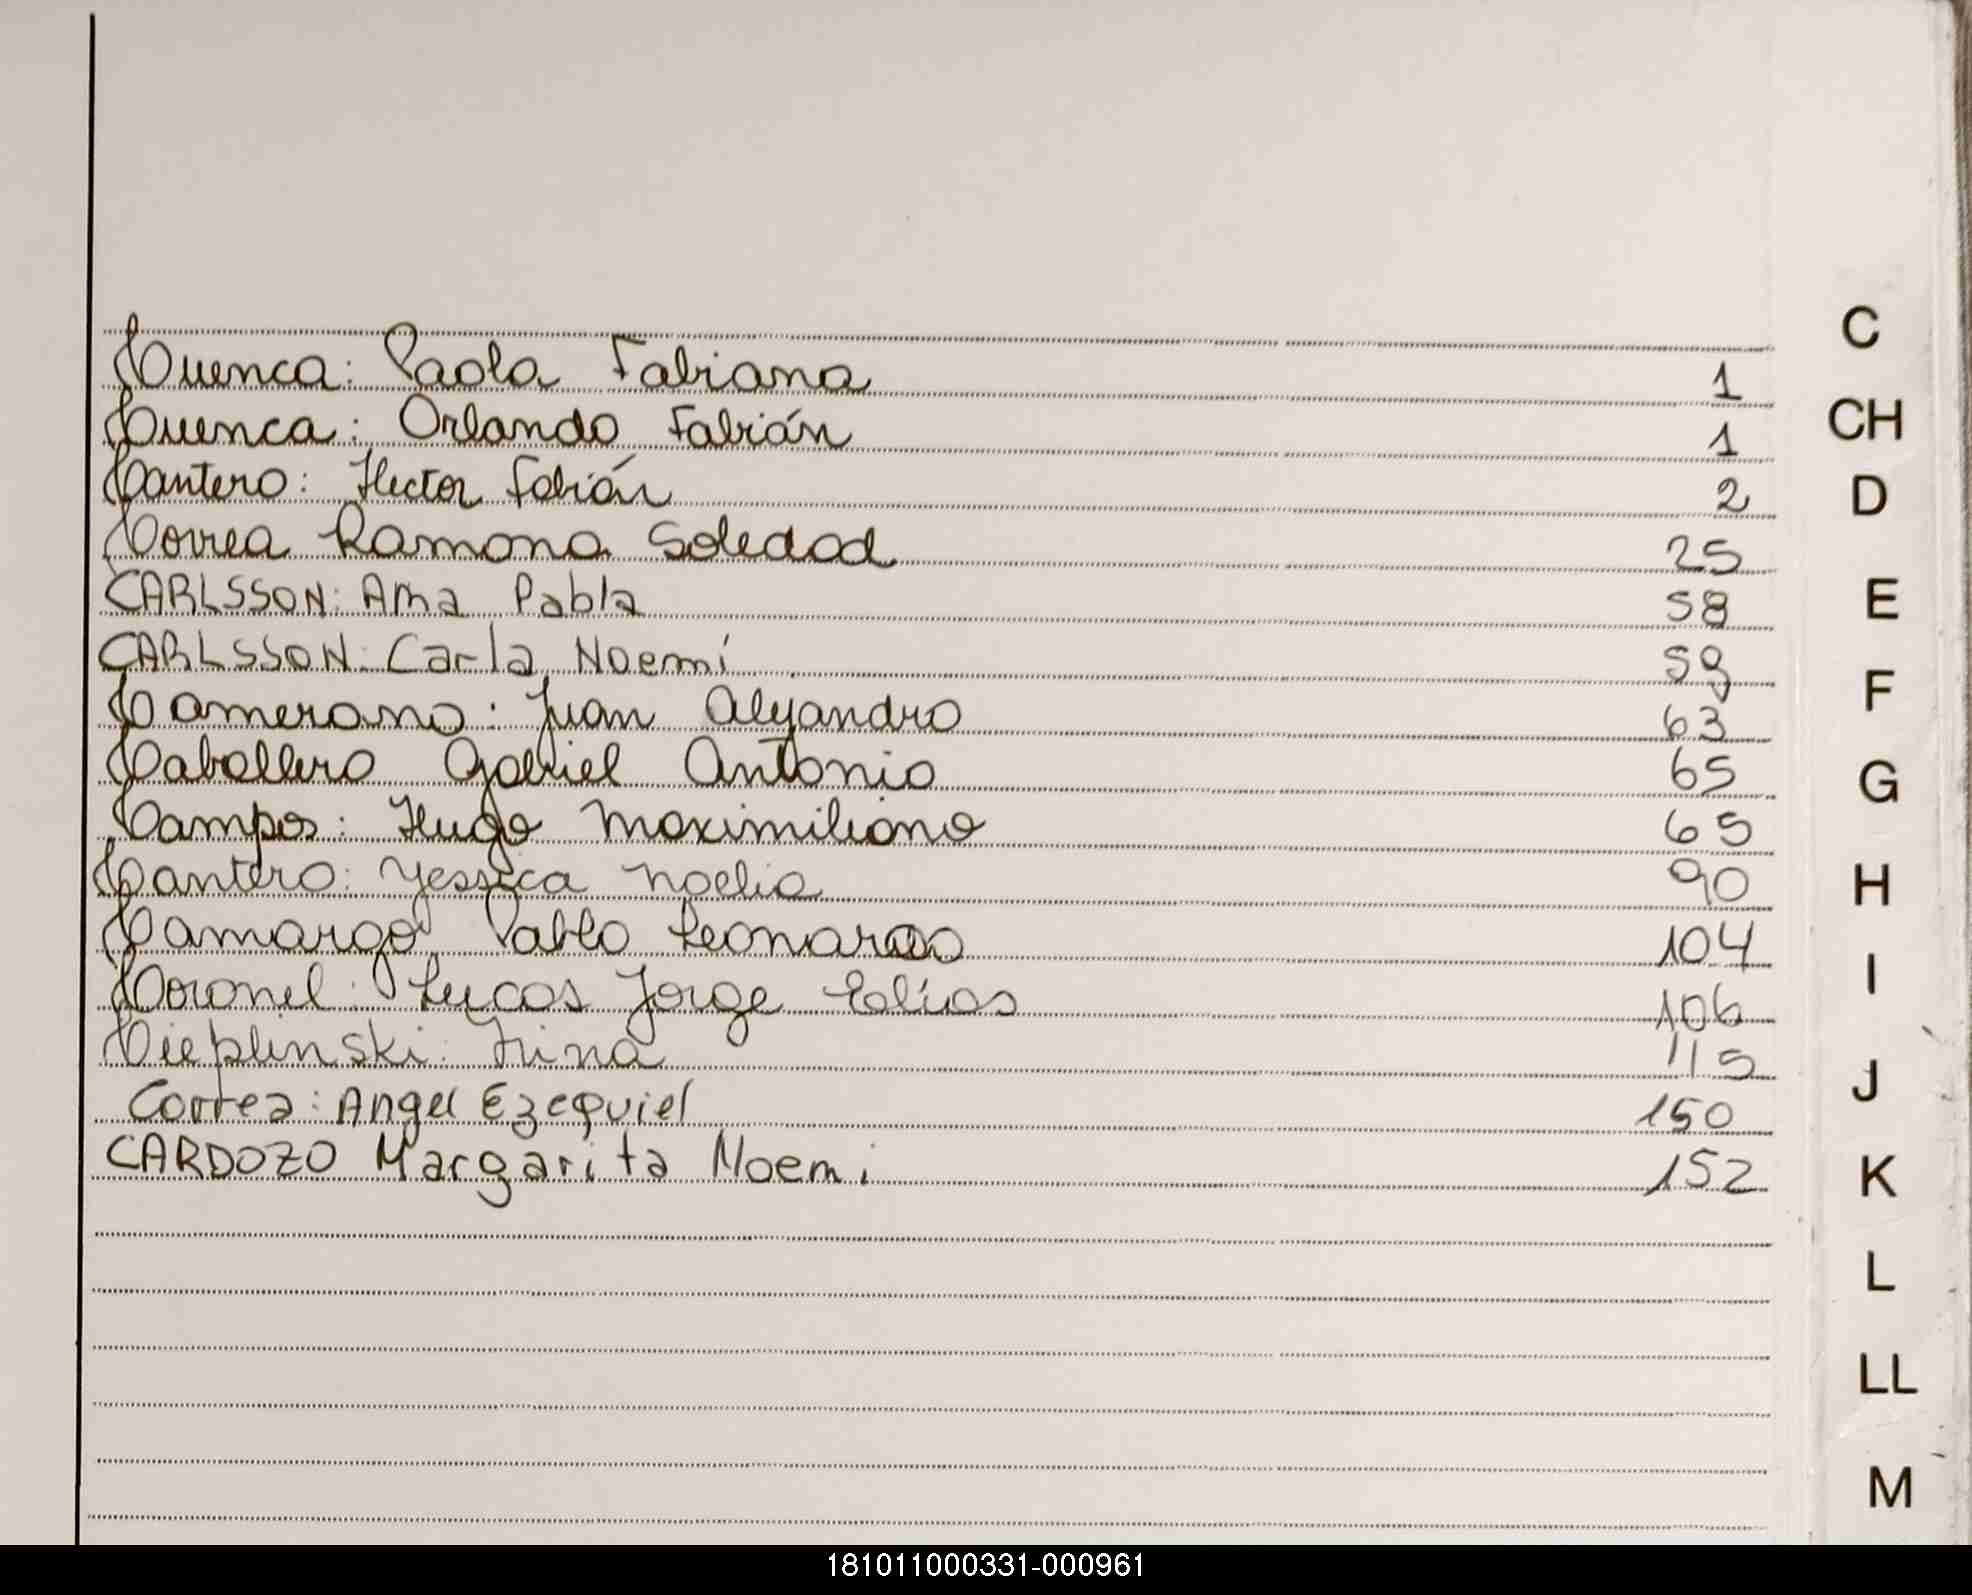 Cuenca: Paola Fabiana 1
Cuenca: Orlando Fabián 1
Cantero: Hector Fabián 2
Correa Ramona Soledad 25
CARLSSON: Ana Pabla 58
CARLSSON: Carla Noemí 59
Camerano: Juan Alejandro 63
Caballero Gabriel Antonio 65
Campos: Hugo Maximiliano 65
Cantero: Yessica Noelia 90
Camargo Pablo Leonardo 104
Coronel: Lucas Jorge Elías 106
Cieplinski: Irina 115
Correa: Angel Ezequiel 150
CARDOZO Margarita Noemi 152
C
CH
D
E
F
G
H
I
J
K
L
LL
M
181011000331-000961